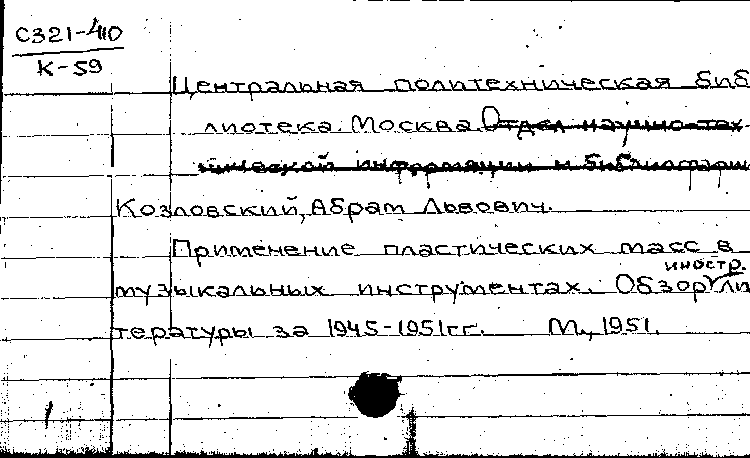 С321-410
К-59
Центральная политехническая биб
лиотека. Москва. Отдел научно-тех
нической информации и библиограф
Козловский, Абрам Львович.
Применение пластических масс в
иностр.
музыкальных инструментах. Обзор ли
тературы за 1945-1951гг. М., 1951.